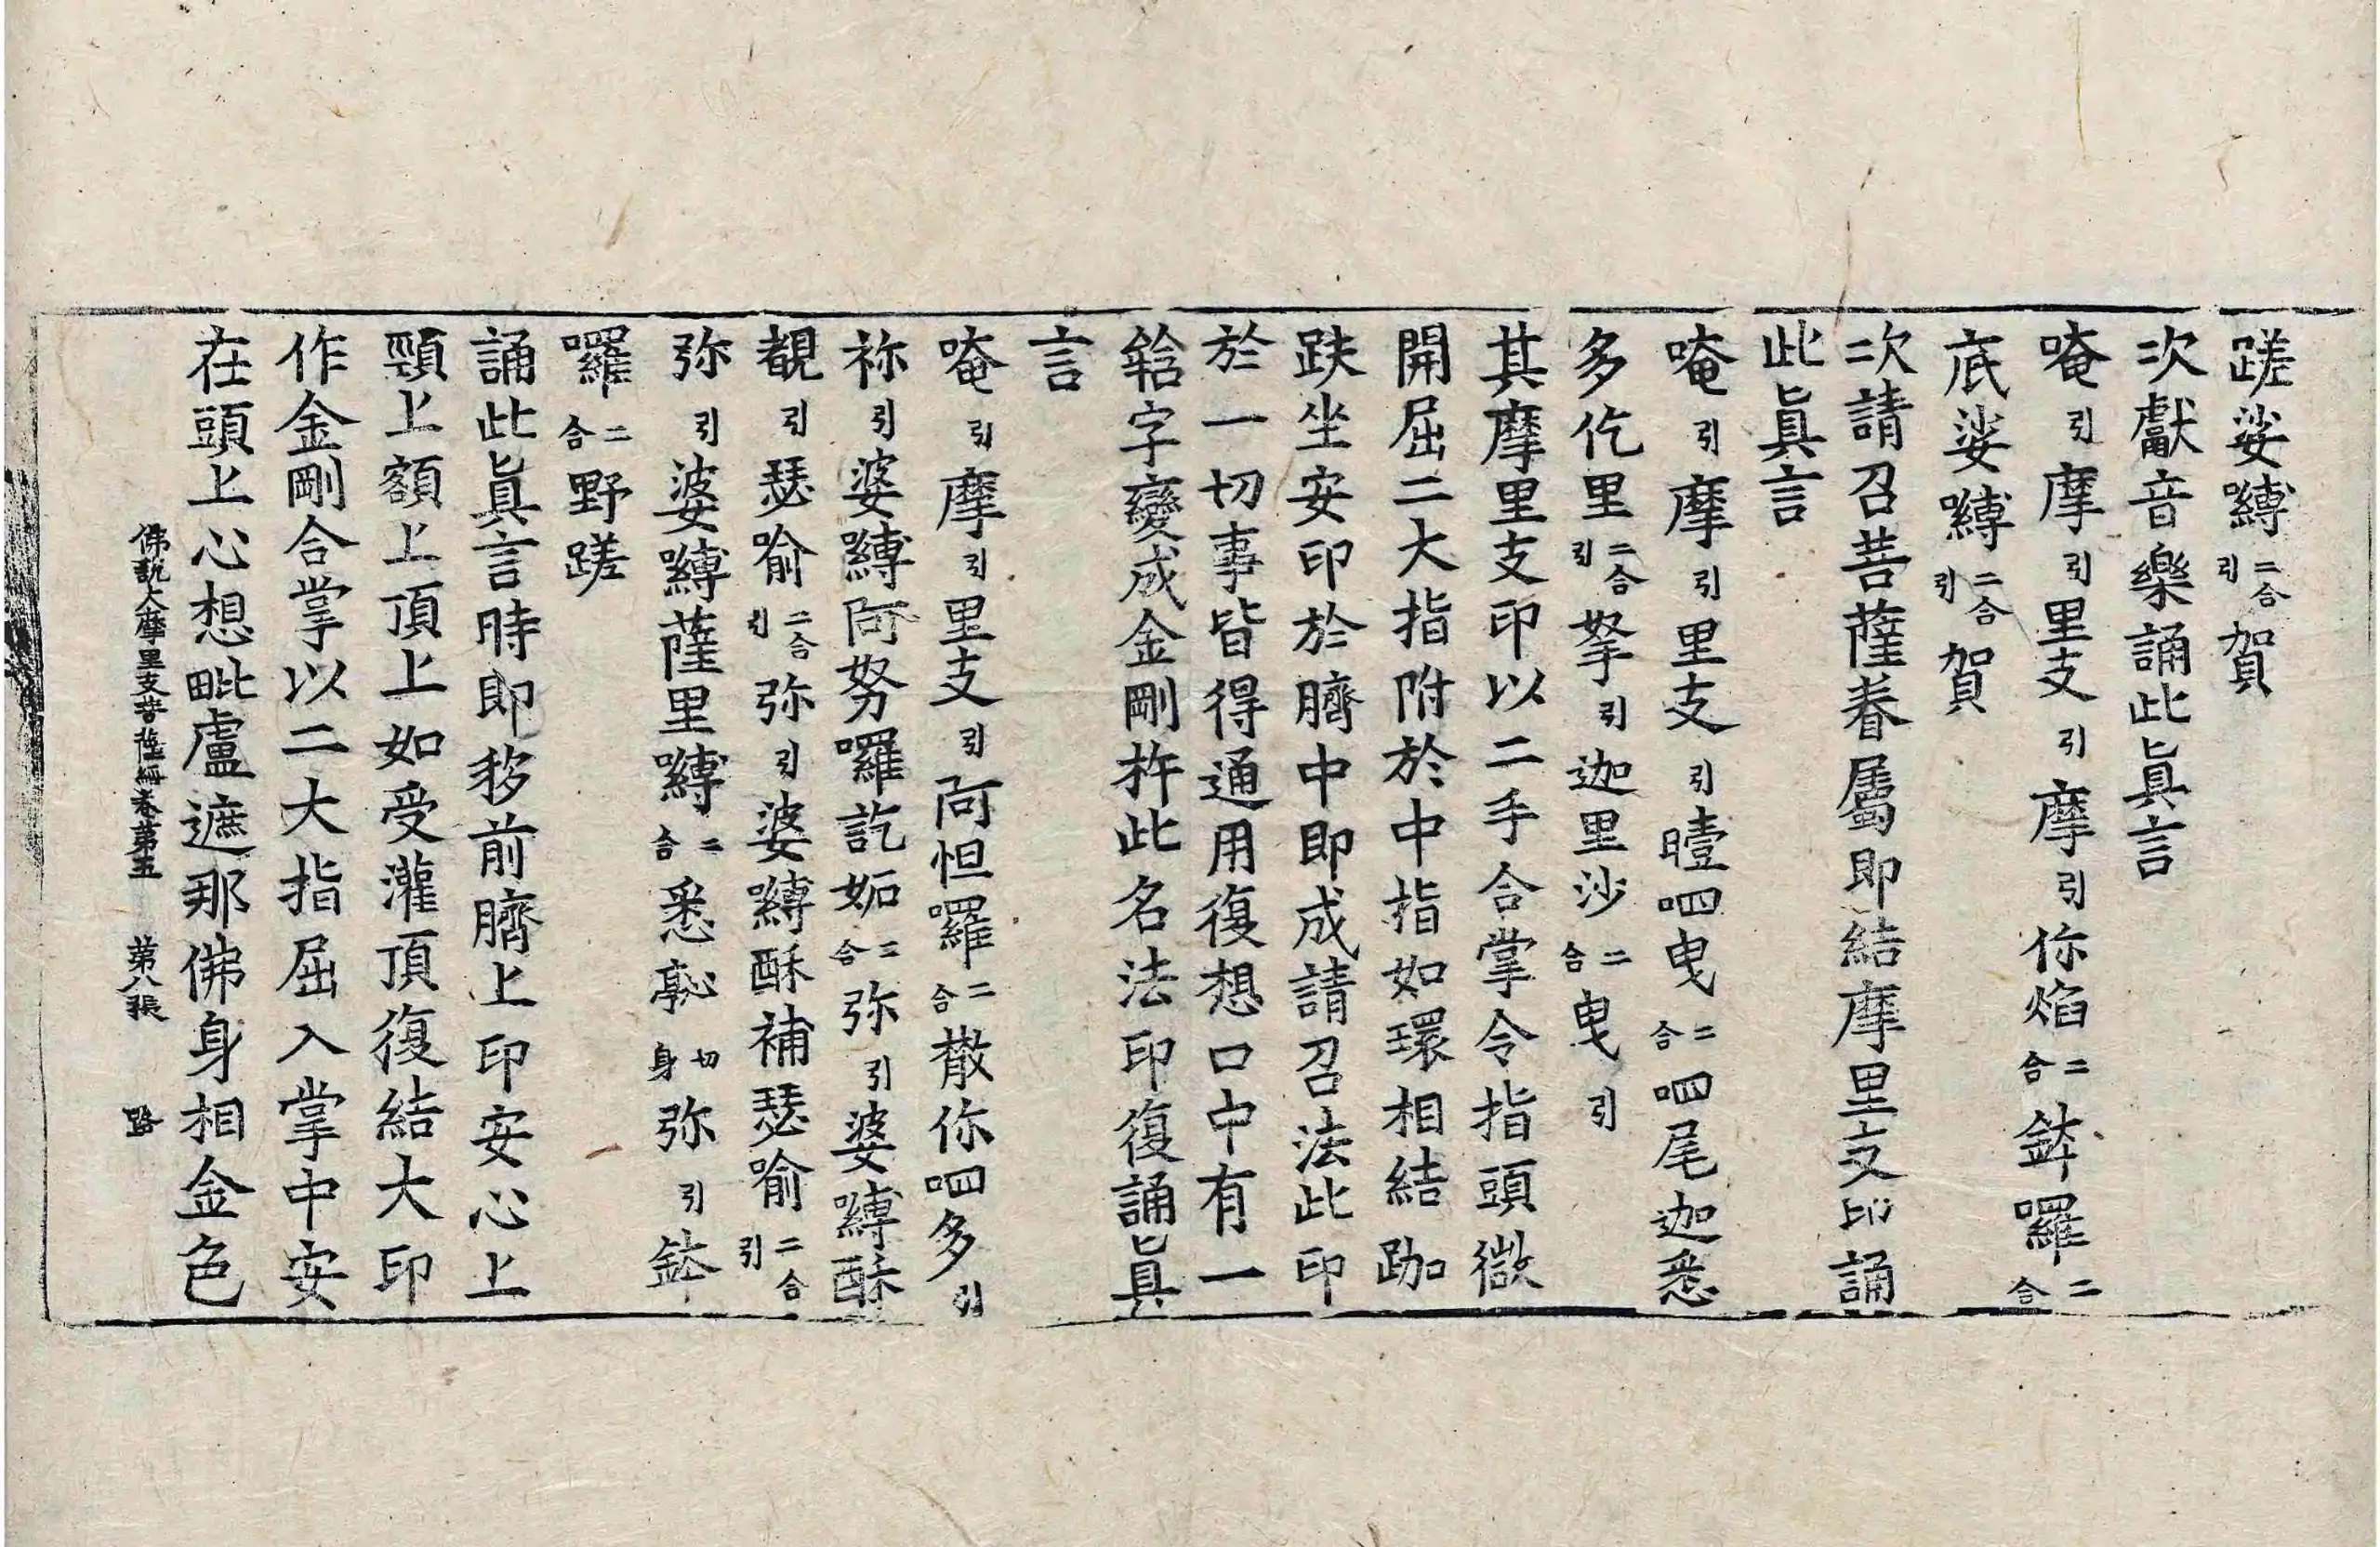 蹉娑嚩二合引賀
次獻音樂誦此眞言
唵引摩引里支引摩引你焰二合鉢囉二合
底娑嚩二合引賀
次請召菩薩眷屬即結摩里支印誦
此眞言
唵引摩引里支引曀呬曳二合呬尾迦悉
多仡里二合引拏引迦里沙二合曳引
其摩里支印以二手合掌令指頭微
開屈二大指附於中指如環相結跏
趺坐安印於臍中即成請召法此印
於一切事皆得通用復想口中有一
𤚥字變成金剛杵此名法印復誦眞
言
唵引摩引里支引阿怛囉二合散你呬多引
祢引婆嚩阿努囉訖妬二合弥引婆嚩酥
覩引瑟喻二合引弥引婆嚩酥補瑟喻二合引
弥引婆嚩薩里嚩二合悉𠅘切身弥引鉢
囉二合野蹉
誦此眞言時即移前臍上印安心上
頸上額上頂上如受灌頂復結大印
作金剛合掌以二大指屈入掌中安
在頭上心想毗盧遮那佛身相金色
佛說大摩里支菩薩經卷第五 第八張 路